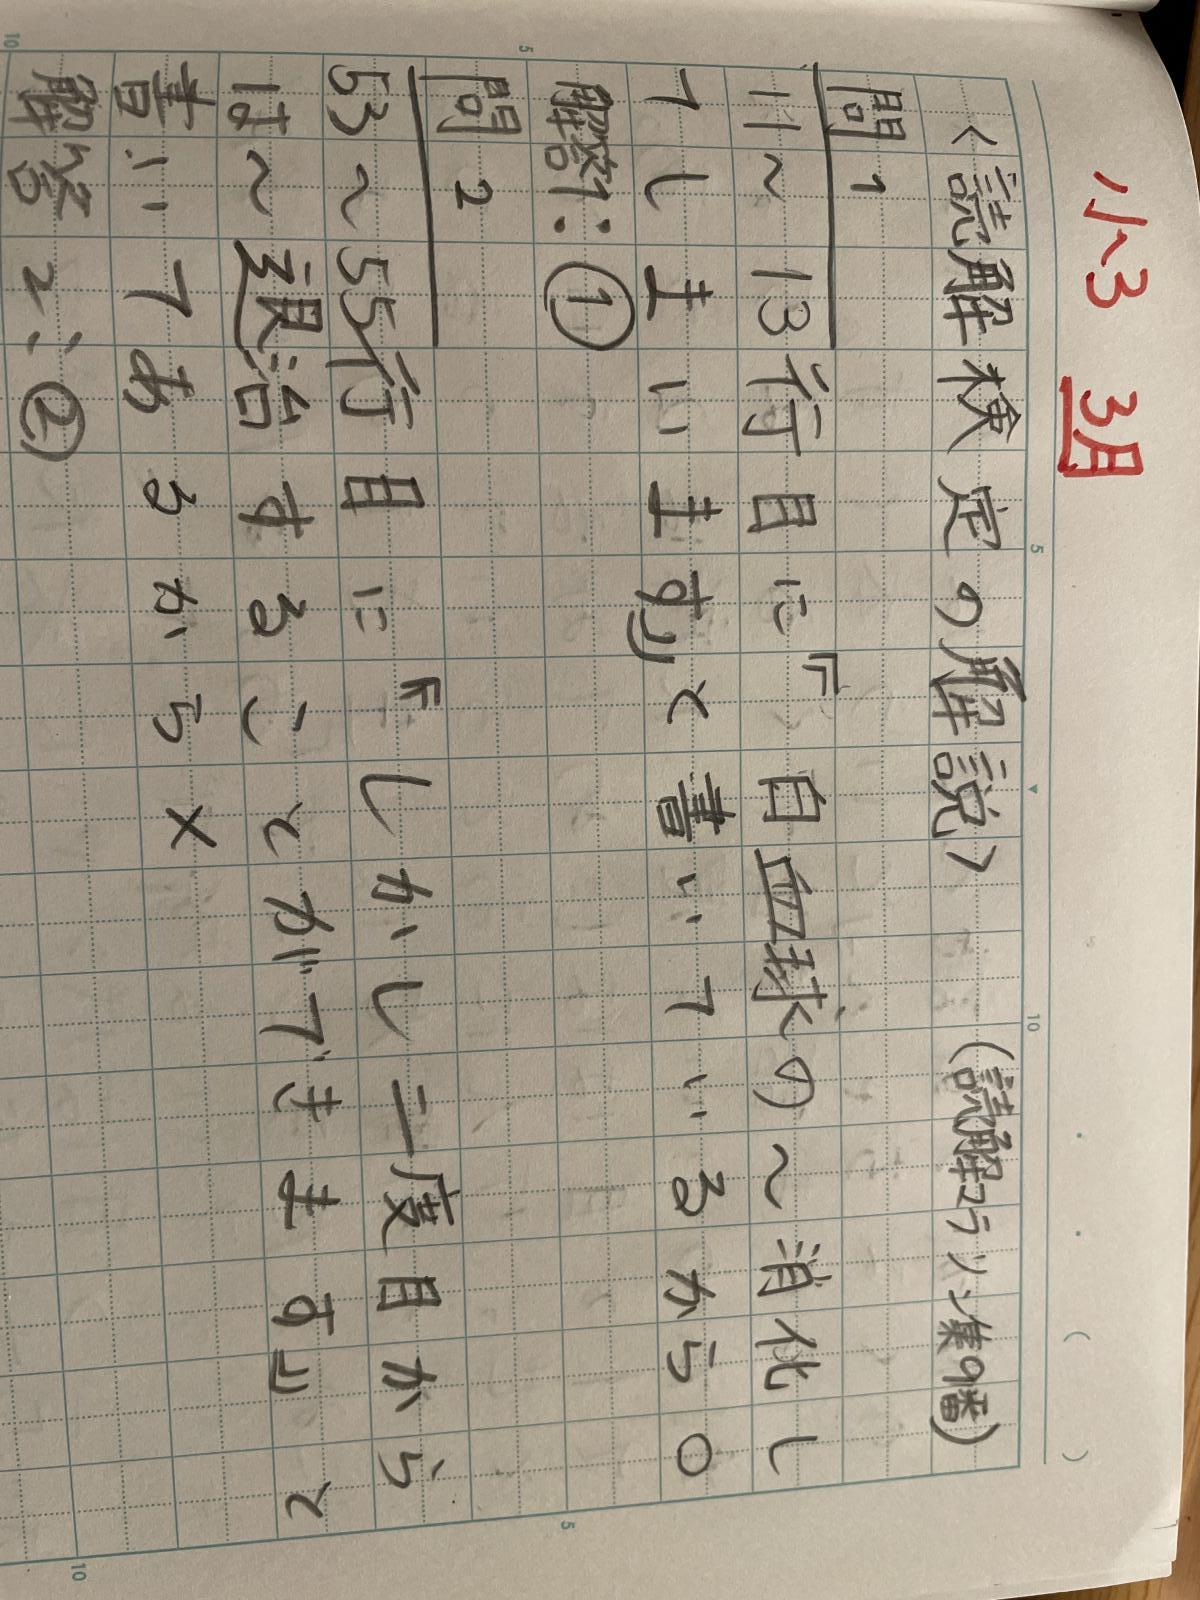 小3 3月
〈読解検定の解説〉 (読解マラソン集9番)
問1
11〜13行目に『白血球の〜消化し
てしまいます』と書いているから○
解答1:①
問2
53〜55行目に『しかし二度目から
は〜退治することができます』と
書いてあるから×
解答2:②
5
10
5
10
5
10